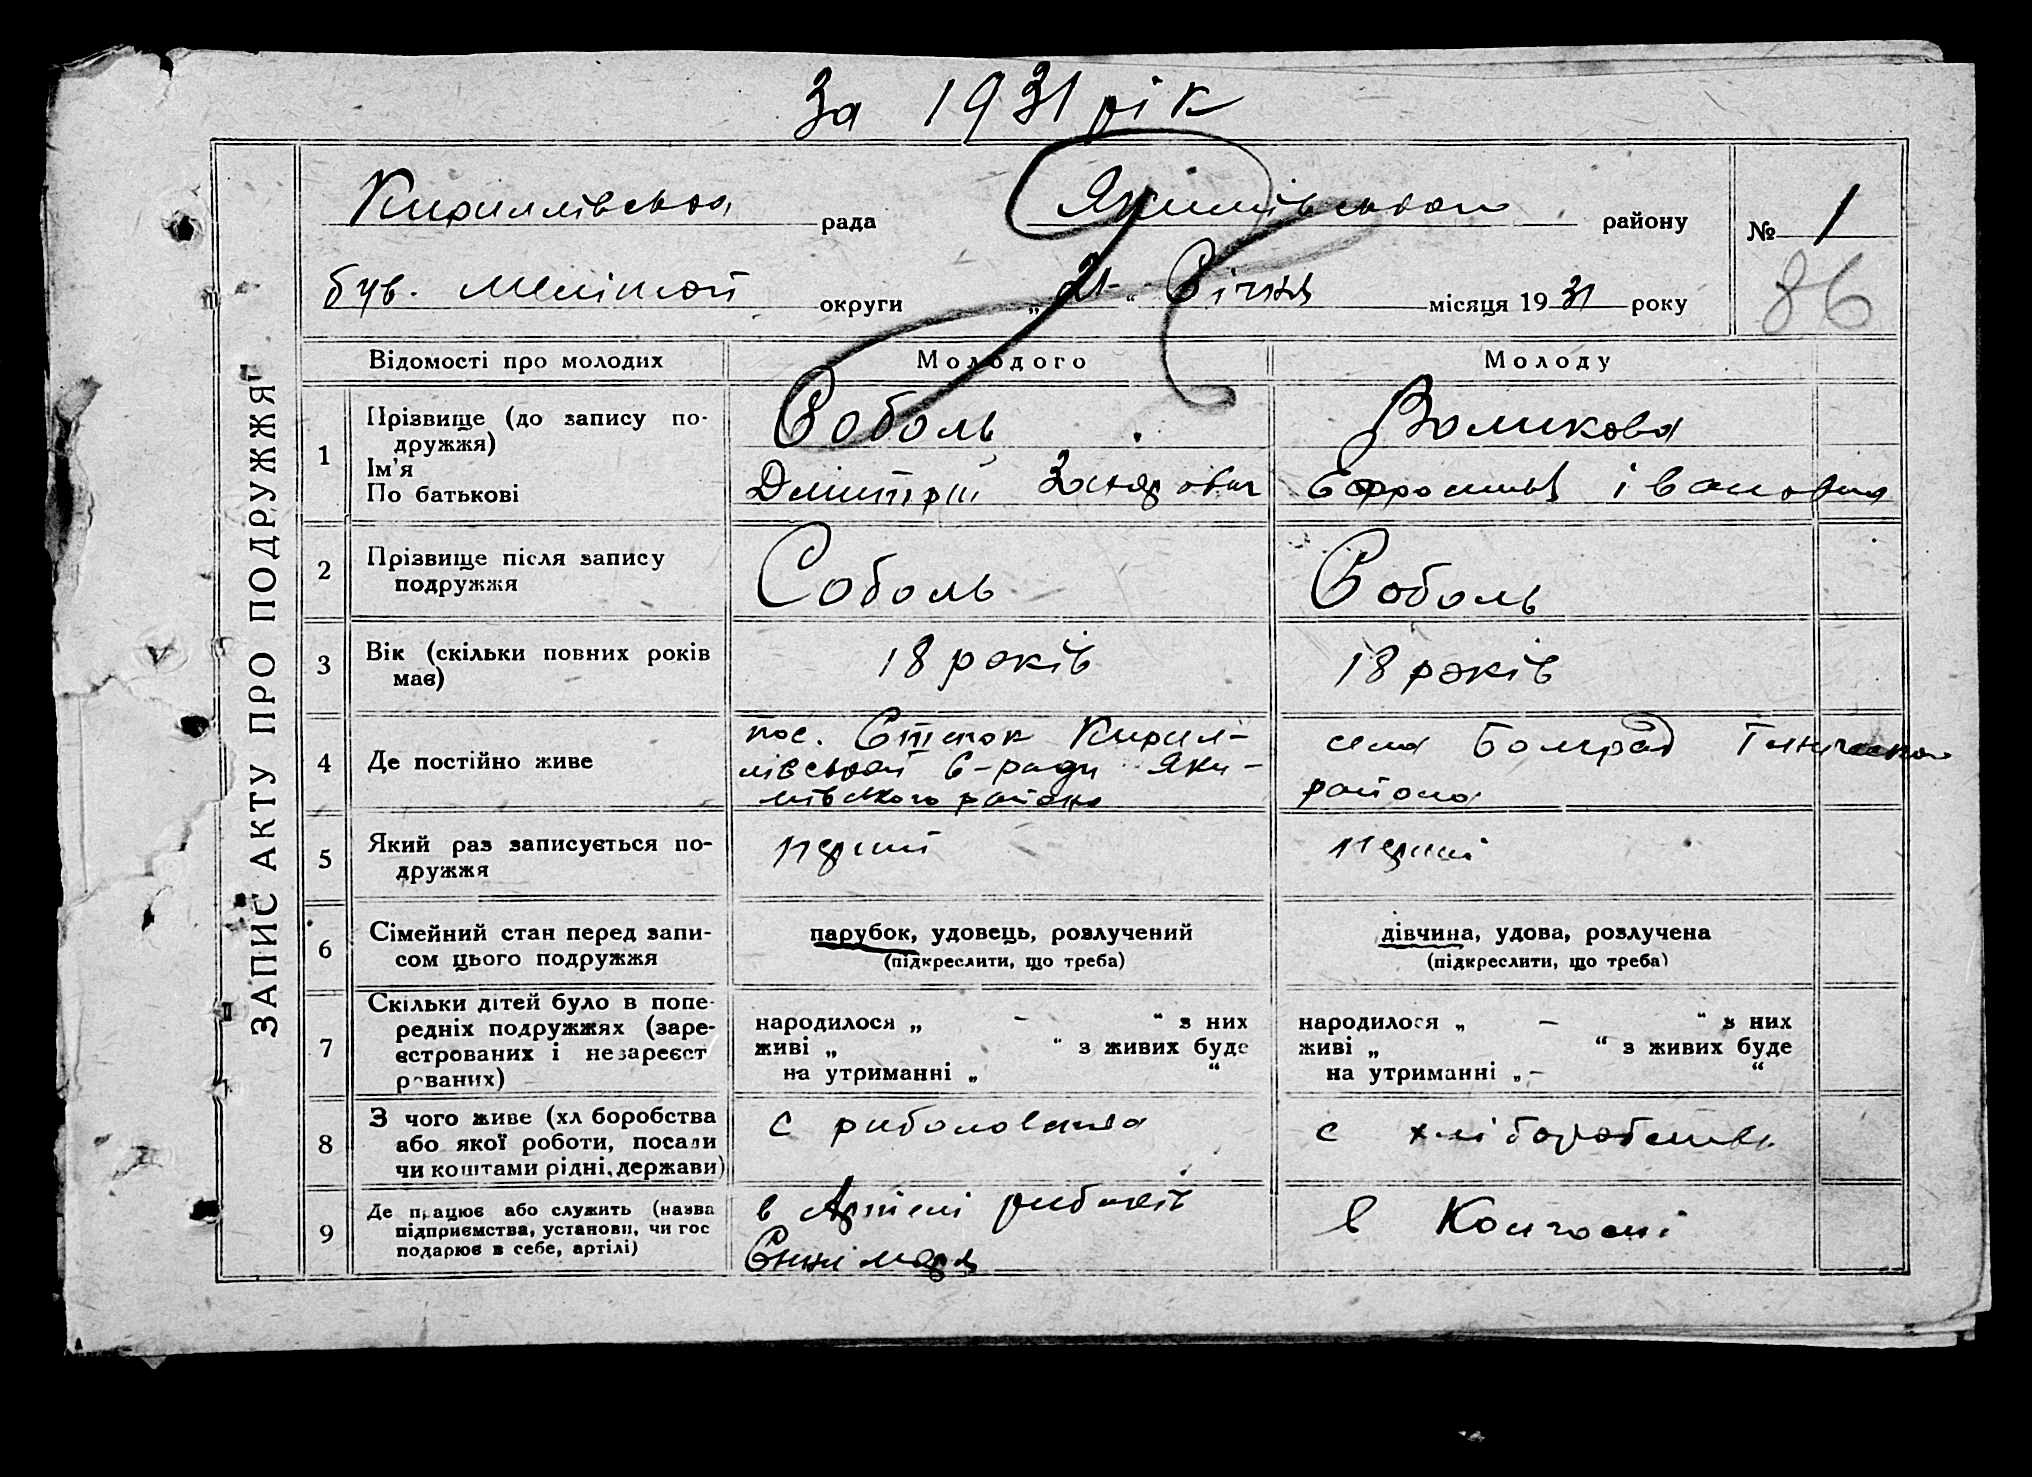 За 1931 рік
Кириллівська рада Якимівського району № 1
був. Меліттоп округи „21“ Січня місяця 1931 року 86
ЗАПИС АКТУ ПРО ПОДРУЖЖЯ
Відомості про молодих Молодого Молоду
1 Прізвище (до запису по-
дружжя)
Ім'я
По батькові
Соболь
Дмитрій
Воликова
Єфросинія Івановна
2 Прізвище після запису
подружжя
Соболь Соболь
3 Вік (скільки повних років
має)
18 років 18 років
4 Де постійно живе
пос. Степок Кирил-
лівської С-ради Яки-
мівського района
села Болград Генического
района
5 Який раз записується по-
дружжя
перший перший
6 Сімейний стан перед запи-
сом цього подружжя
парубок, удовець, розлучений
(підкреслити, що треба)
дівчина, удова, розлучена
(підкреслити, що треба)
7 Скільки дітей було в попе-
редніх подружжях (заре-
єстрованих і незареєст
рованих)
народилося „ – “ з них
живі „ “ з живих буде
на утриманні „ “
народилося „ – “ з них
живі „ “ з живих буде
на утриманні „ – “
8 З чого живе (хл боробства
або якої роботи, посади
чи коштами рідні, держави)
с риболовства с хліборобства
9 Де працює або служить (назва
підприємства, установи, чи гос
подарює в себе, артілі)
в Артілі рибаків
моря
в Колгоспі